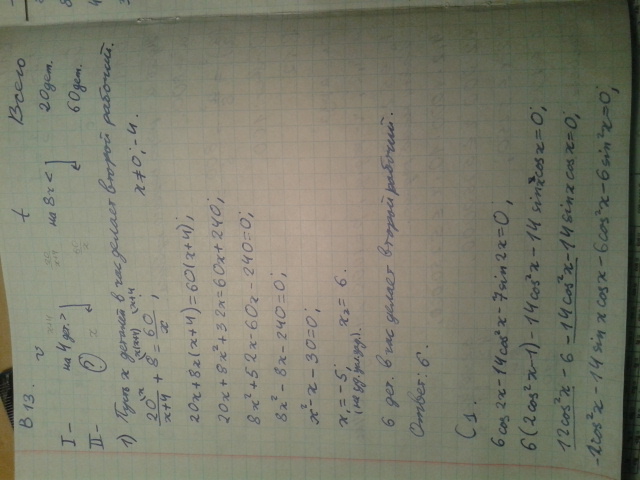 В 13. v t Всего
I - на 4 дет. > на 8ч < 20 дет.
II - ? x 60 дет.
1) Пусть x деталей в час делает второй рабочий.
20/(x+4) + 8 = 60/x; x≠0; -4.
20x+8x(x+4)=60(x+4);
20x+8x²+32x=60x+240;
8x²+52x-60x-240=0;
8x²-8x-240=0;
x²-x-30=0;
x₁=-5; x₂=6.
6 дет. в час делает второй рабочий.
Ответ: 6.
C 1.
6cos2x-14cos²x-7sin2x=0;
6(2cos²x-1)-14cos²x-14sinxcosx=0;
12cos²x-6-14cos²x-14sinxcosx=0;
-2cos²x-14sinxcosx-6cos²x-6sin²x=0;